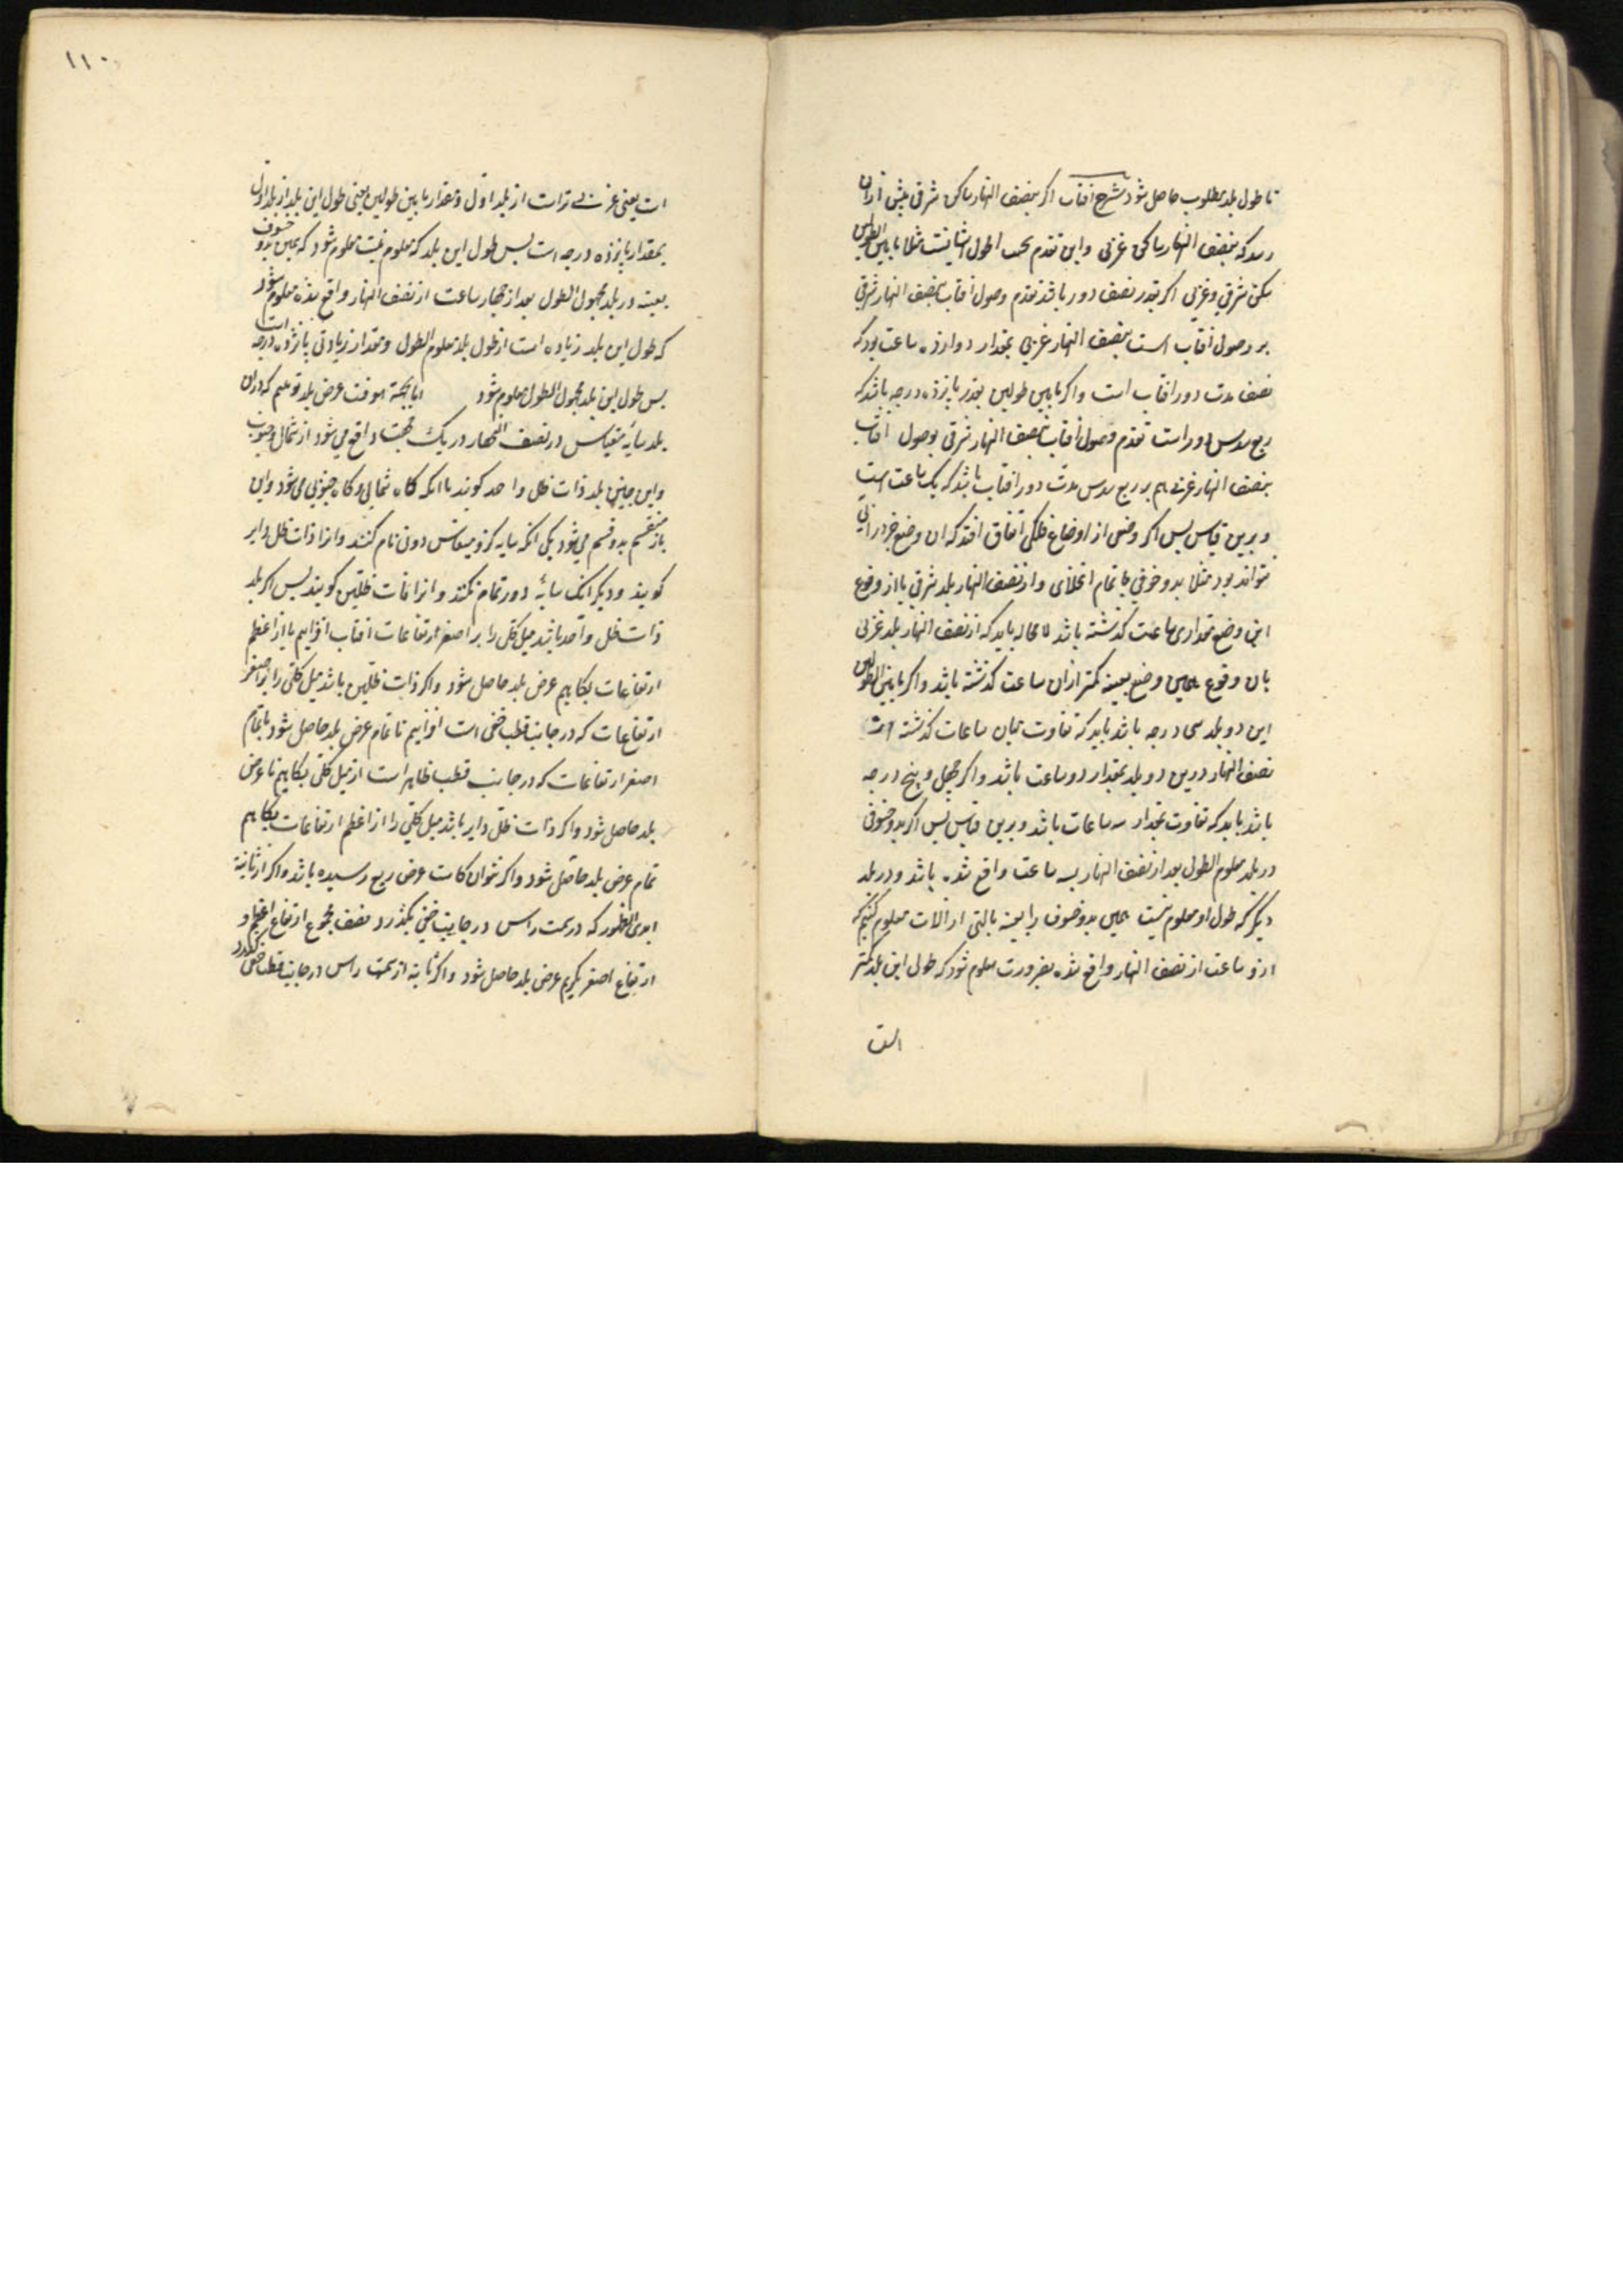 تا طول بلد مطلوب حاصل شود شرح افتاب اکر بنصف النهار ساکن شرقی پیش ازان
رسد که بنصف النهار ساکن غربی و این تقدم بحسب طول ایشانست مثلا ما بین الطولین
مسکن شرقی و غربی اکر بقدر نصف دور باشد تقدم وصول افتاب بنصف النهار شرقی
بر وصول افتاب است بنصف النهار غربی بمقدار دوازده ساعت بود که
نصف مدت دور افتاب است و اکر ما بین طولین بقدر پانزده درجه باشد که
ربع سدس دور است تقدم وصول افتاب بنصف النهار شرقی بوصول افتاب
بنصف النهار غربی هم بربع سدس مدت دور افتاب باشد که یک ساعت است
و برین قیاس پس اکر وضعی از اوضاع فلکی اتفاق افتد که ان وضع جز در انی
نتواند بود مثلا بدو خسوفی یا تمام انجلای و از نصف النهار بلد شرقی یا از وقوع
این وضع مقداری ساعت کذشته باشد لا محاله باید که از نصف النهار بلد غربی
بان وقوع همین وضع بعینه کمتر ازان ساعت کذشته باشد و اکر ما بین الطولین
این دو بلد سی درجه باشد باید که تفاوت میان ساعات کذشته از
نصف النهار درین دو بلد بمقدار دو ساعت باشد و اکر چهل و پنج درجه
باشد باید که تفاوت بمقدار سه ساعات باشد و برین قیاس پس اکر بدو خسوفی
در بلد معلوم الطول بعد از نصف النهار بسه ساعت واقع شده باشد و در بلد
دیکر که طول او معلوم نیست همین بدو خسوف را بعینه بالتی از الات معلوم کنیم که
از دو ساعت از نصف النهار واقع شده بضرورت معلوم شود که طول این بلد کمتر
۱۱۰
است یعنی غربی تر است از بلد اول و مقدار ما بین طولین یعنی طول این بلد از بلد اول
بمقدار پانزده درجه است پس طول این بلد که معلوم نیست معلوم شود که همین بدو خسوف
بعینه در بلد مجهول الطول بعد از چهار ساعت از نصف النهار واقع شده معلوم شود
که طول این بلد زیاده است از طول بلد معلوم الطول و مقدار زیادتی پانزده درجه است
پس طول این بلد مجهول الطول معلوم شود اما بجهة معرفت عرض بلد کوییم که دران
بلد سایه مقیاس در نصف النهار در یک جهت واقع می شود از شمال و جنوب
و این چنین بلد ذات ظل واحد کویند یا انکه کاه شمالی و کاه جنوبی می شود و این
باز منقسم بدو قسم می شود یکی انکه سایه کرد مقیاس دوری تمام کنند و انرا ذات ظل دایر
کویند و دیکر انک سایه دور تمام نکند و انرا ذات ظلین کویند پس اکر بلد
ذات ظل واحد باشد میل کلی را بر اصغر ارتفاعات افتاب افزاییم یا از اعظم
ارتفاعات بکاهیم عرض بلد حاصل شود و اکر ذات ظلین باشد میل کلی را بر اصغر
ارتفاعات که در جانب قطب خفی است افزاییم تا تمام عرض بلد حاصل شود یا تمام
اصغر ارتفاعات که در جانب قطب ظاهر است از میل کلی بکاهیم تا عرض
بلد حاصل شود و اکر ذات ظل دایر باشد میل کلی را از اعظم ارتفاعات بکاهیم
تمام عرض بلد حاصل شود و اکر عرض ربع رسیده باشد و اکر از ثابته
ابدی الظهور که در سمت راس در جانب خفی بکذرد نصف مجموع ارتفاع اعظم و
ارتفاع اصغر بکیریم عرض بلد حاصل شود و اکر ثابته از سمت راس در جانب قطب خفی بکذرد